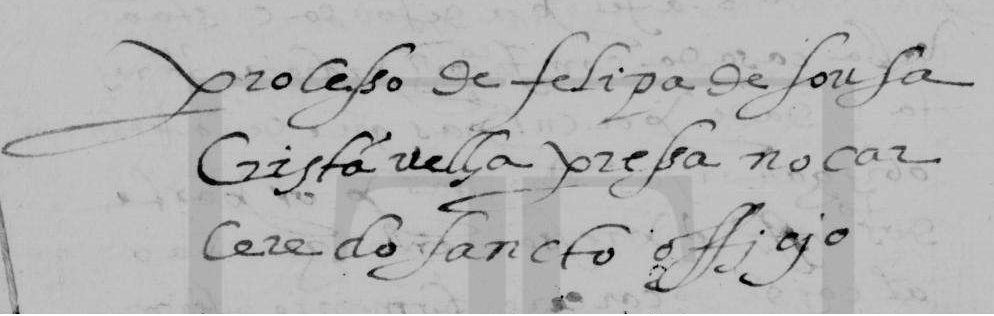 processo de felipa de sousa
Cristã velha pressa no car
cere do sancto officjo